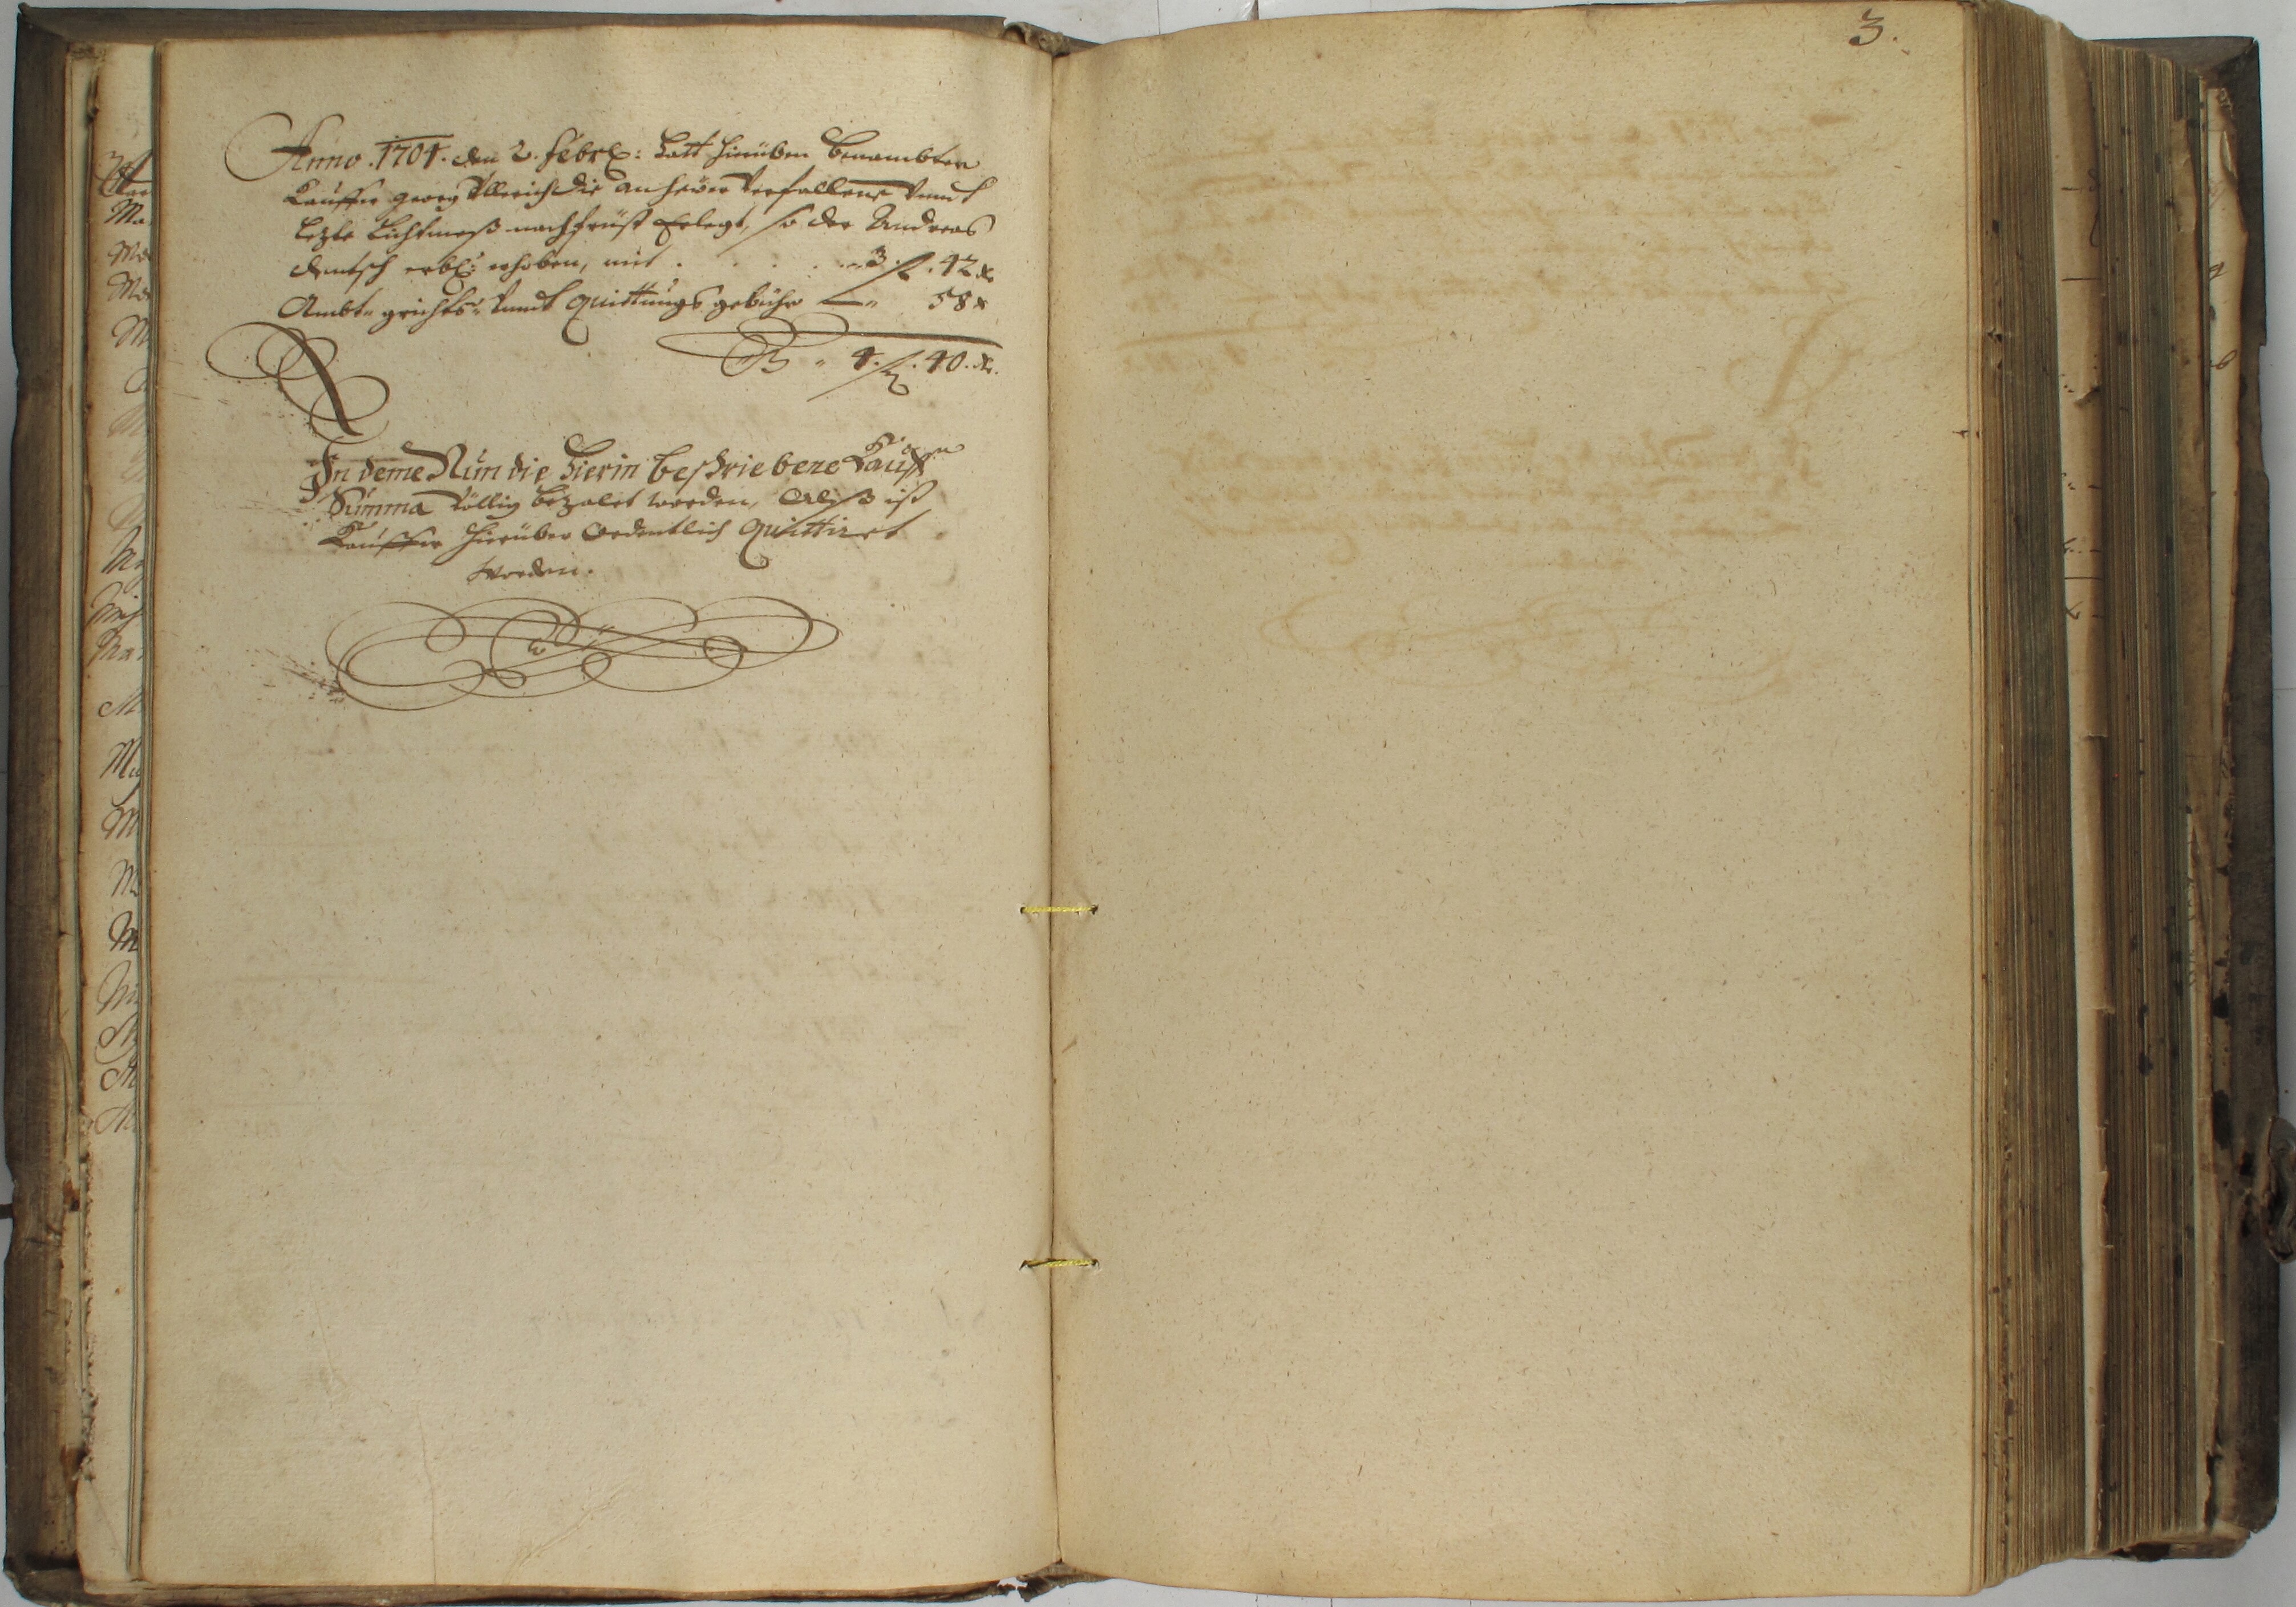 3.
Anno .1701. den 2. Febr: hatt hieüben benambter
Kauffer Georg Ullrich die an heüer verfallene unndt
letzte Lichtmeß nachfrist Erlegt, so der Andreas
erhoben, mit . . . . 3 f. 42 x
Ambt- grichts- unndt quittungs gebühr — 58 x
4. f. 40. x.
In deme Nun die hierin beschriebene Kauff
Summa völlig bezalet worden, Alß ist
Kauffer hierüber Ordentlich Quittiert
worden.